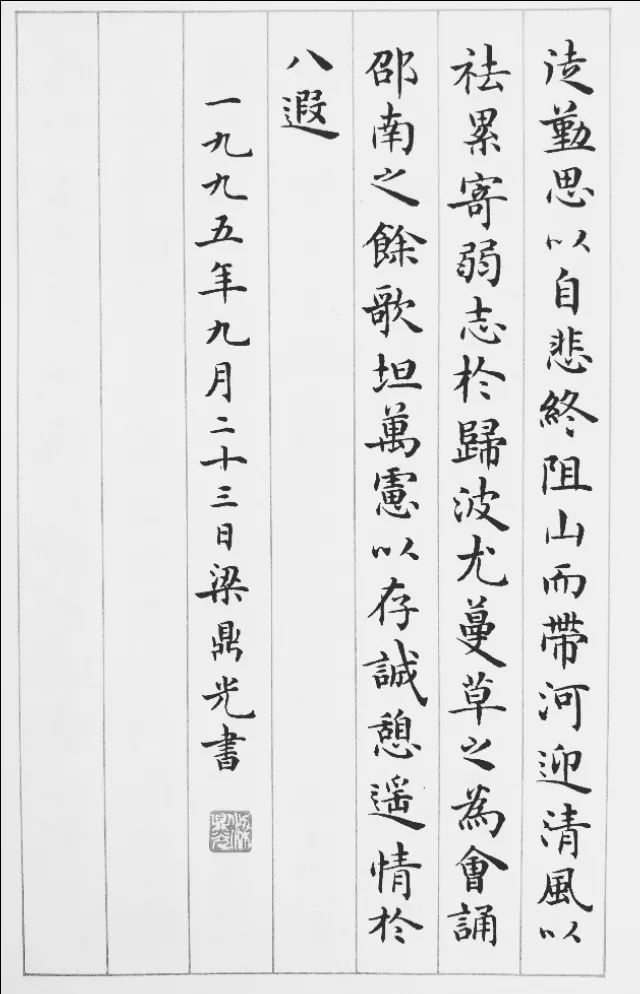 徒勤思以自悲終阻山而帶河迎清風以
祛累寄弱志於歸波尤蔓草之為會誦
邵南之餘歌坦萬慮以存誠憩遥情於
八遐
一九九五年九月二十三日梁鼎光書